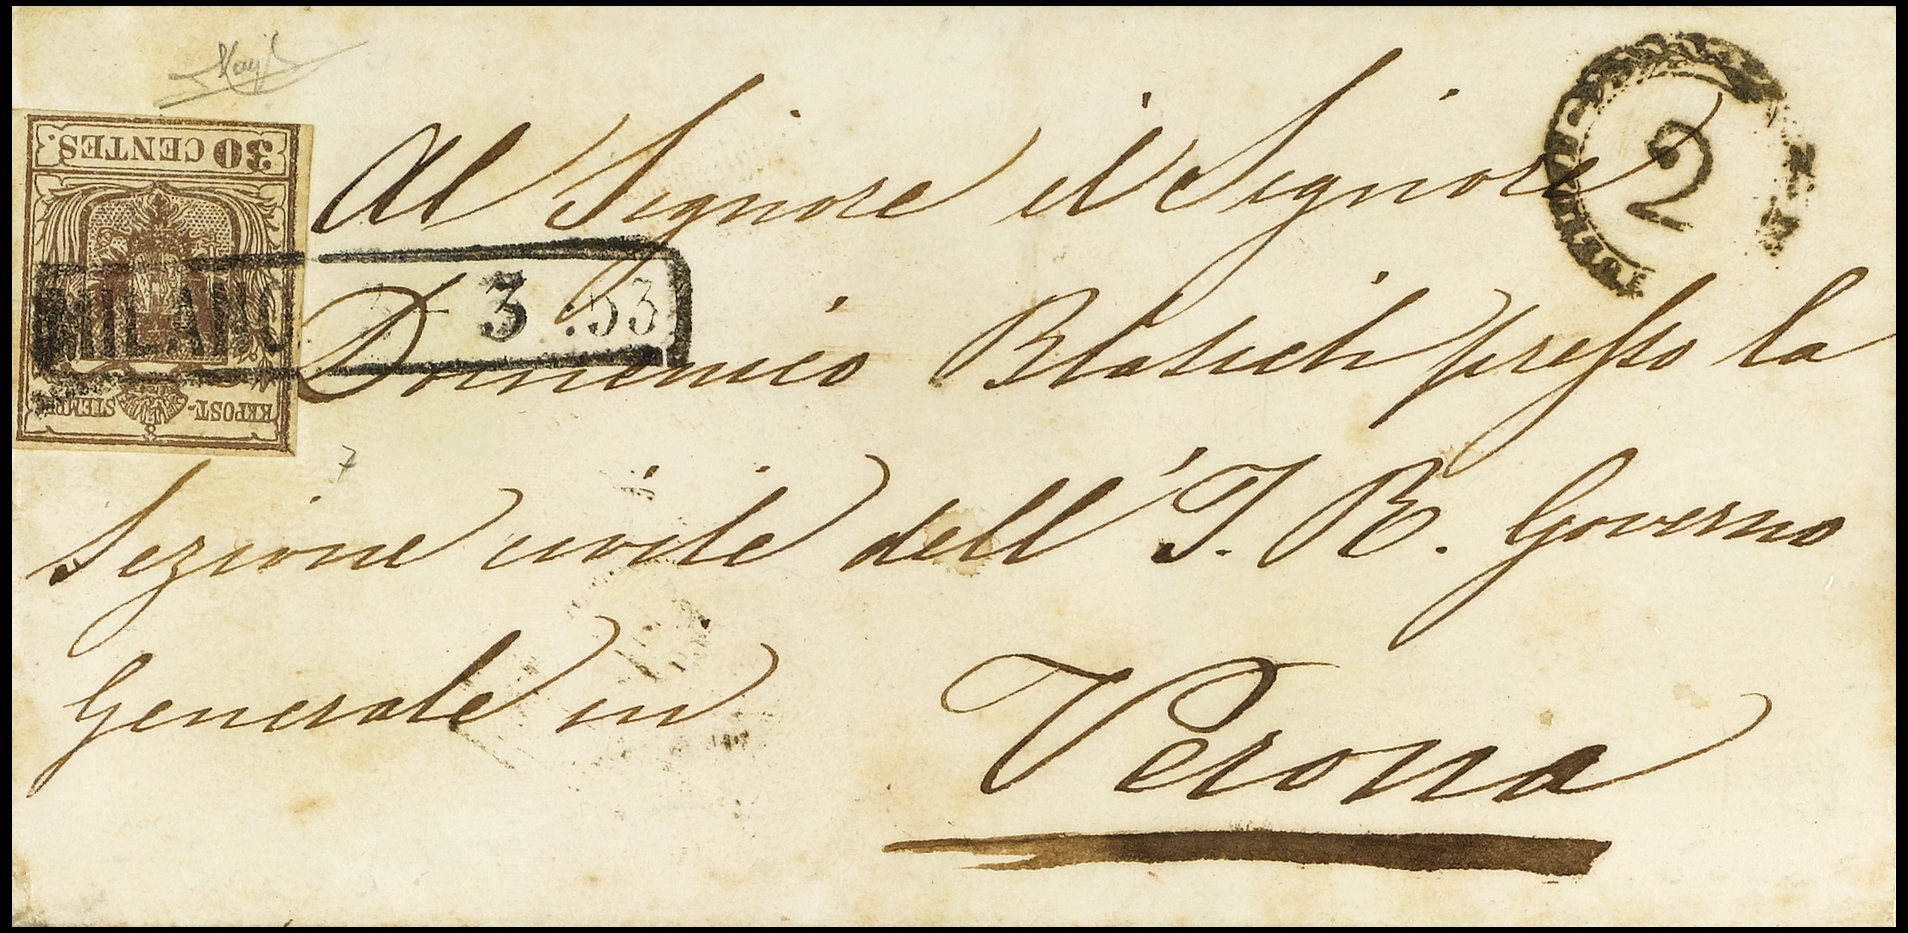 30 CENTES.
KKPOST-STEMPEL
MILANO 3 :53
2
Al Signore il Signore
Domenico Blasich presso la
Sezione civile dell' I. R. Governo
Generale in
Verona
7